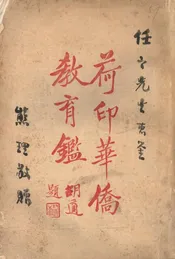 任之先生
荷印華僑
教育鑑
胡適題
熊理敬贈